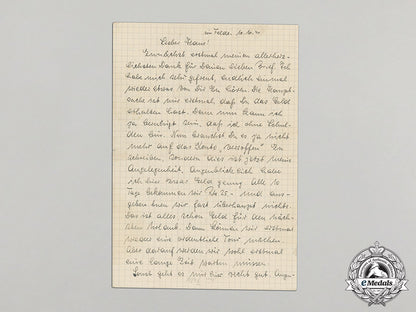 im Felde. 10.10.41
Lieber Hans!
Zunächst erstmal meinen allerherz-
lichsten Dank für Deinen lieben Brief. Ich
habe mich sehr gefreut, endlich einmal
wieder etwas von Dir zu hören. Die Haupt-
sache ist mir erstmal daß Du das Geld
erhalten hast. Dann kann ich
ja beruhigt sein, daß ich ohne Schul-
den bin. Nun brauchst Du es ja nicht
mehr auf das Konto "versoffen" zu
schreiben, sondern dies ist jetzt meine
Angelegenheit. Augenblicklich habe
ich hier zwar Geld genug. Alle 10
Tage bekommen wir 25.- und aus-
geben tun wir fast überhaupt nichts.
Das ist alles schon Geld für den näch-
sten Urlaub. Dann können wir erstmal
wieder eine ordentliche Tour machen.
Aber darauf werden wir wohl erstmal
eine lange Zeit warten müssen.
Sonst geht es mir hier recht gut. Augen-
eMedals